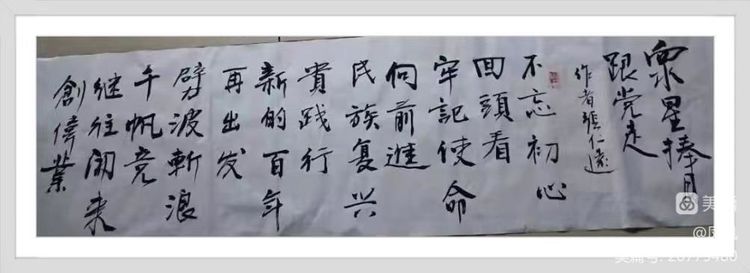 眾星捧月
跟党走
作者張仁遠
不忘初心
回頭看
牢記使命
向前進
民族复兴
貴践行
新的百年
再出发
劈波斬浪
千帆竞
继往開来
創偉業
美篇